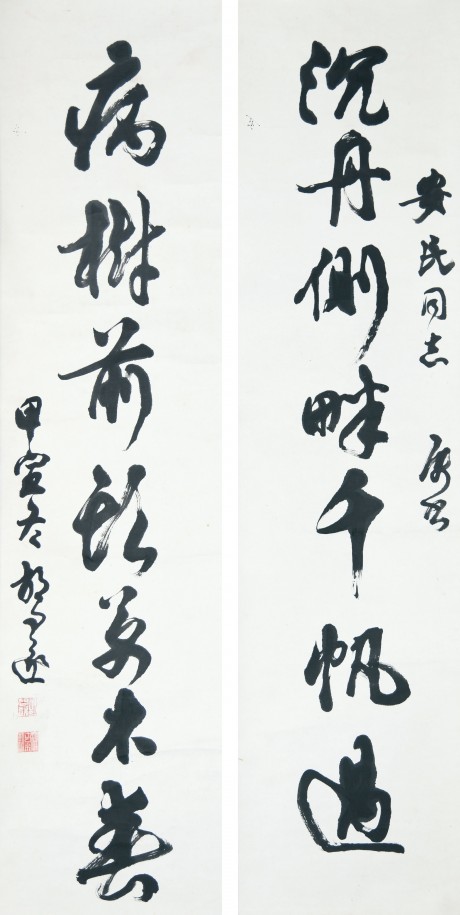 安民同志
沉舟側畔千帆過
病樹前頭萬木春
甲寅冬 胡問遂